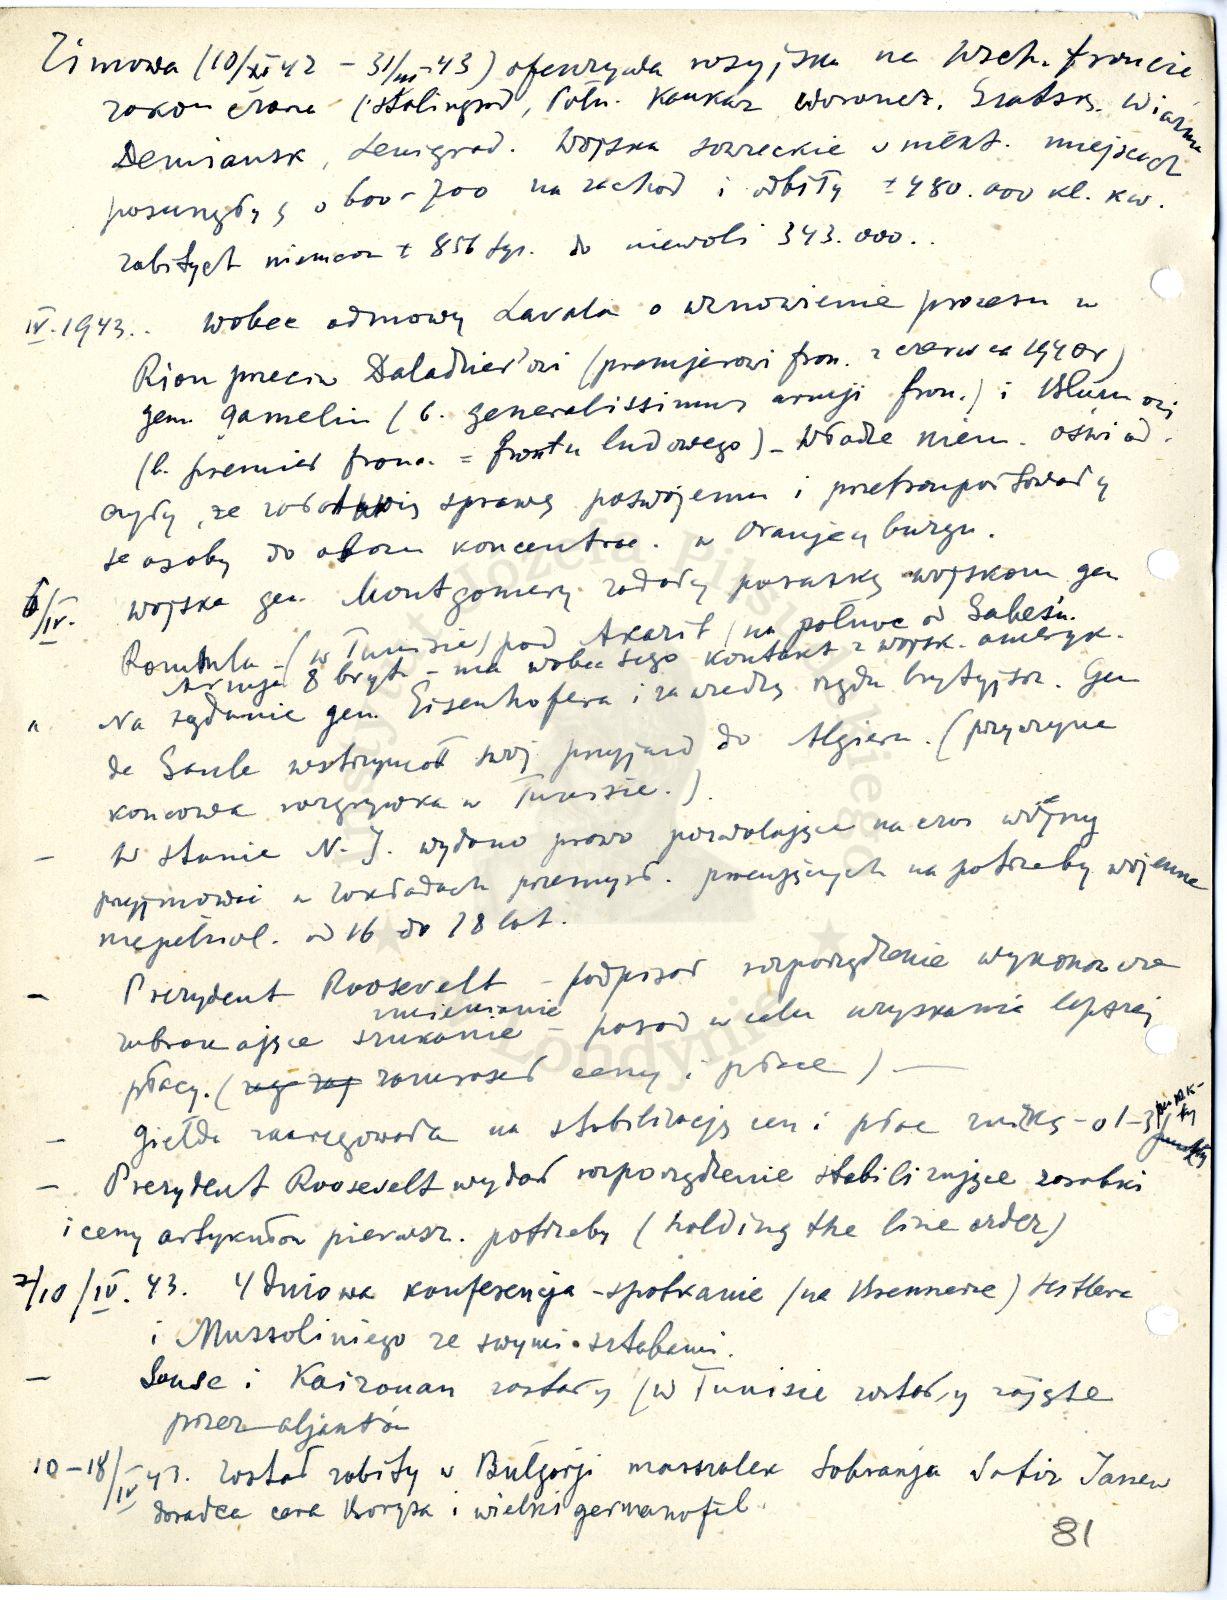 Zimowa (10/XI 42 – 31/III 43) ofenzywa rosyjska na wsch. froncie
zakończona (Stalingrad, Połn. Kaukaz Woroneż. Gżatsk. Wiaźma
Demiansk, Leningrad. Wojska sowieckie w niekt. miejscach
posunęły ę o 600–700 na zachod i odbiły ± 480.000 kl. kw.
zabitych niemcow ± 856 tys. do niewoli 343.000..
IV. 1943.. Wobec odmowy Lavala o wznowienie procesu w
Riom przeciw Daladier'owi (premjerowi fran. z czerwca 1940r)
gen. Gamelin (b. generalissimus armji fran.) i Blumowi
(b. premier franc. = frontu ludowego) – Władze niem. oświad.
czyły, że załatwią sprawę poswojemu i przetransportowały
te osoby do obozu koncentrac. w Oranjenburgu.
6/IV. wojska gen. Montgomery zadały porażkę wojskom gen
Rommla – (w Tunisie) pod Akarit (na północ od Gabesu.
Armja 8 bryt – ma wobec tego kontakt z wojsk. ameryk.
" Na żądanie gen. Eisenhofera i za wiedzą rządu brytyjsk. Gen
de Gaule wstrzymał swój przyjazd do Algieru. (przyczyna
koncowa rozgrywka w Tunisie.).
– W stanie N. J. wydano prawo pozwalające na czas wojny
przyjmować w zakładach przemysł. pracujących na potrzeby wojenne
niepełnol. od 16 do 18 lat.
– Prezydent Roosevelt – podpisał rozporządzenie wykonawcze
zmienianie
zabraniające szukanie – posad w celu uzyskania lepszej
płacy. ( zamroził ceny i płace ) —
– Giełda zareagowała na stabilizację cen i płac zniżką – o 1–3
punk-
ty
– Prezydent Roosevelt wydał rozporządzenie stabilizujące zarobki
i ceny artykułów pierwsz. potrzeby (holding the line order)
7/10/IV. 43. 4 dniowa konferencja – spotkanie (na Brennerze) Hitlera
i Mussoliniego ze swymi sztabami.
– Souse i Kairouan zostały (w Tunisie zostały zajęte
przez aljantów
10–18/IV 43. został zabity w Bułgarji marszalek Sobranja Sotir Janew
doradca cara Borysa i wielki germanofil.
81
Józefa Piłsudskiego
Londynie